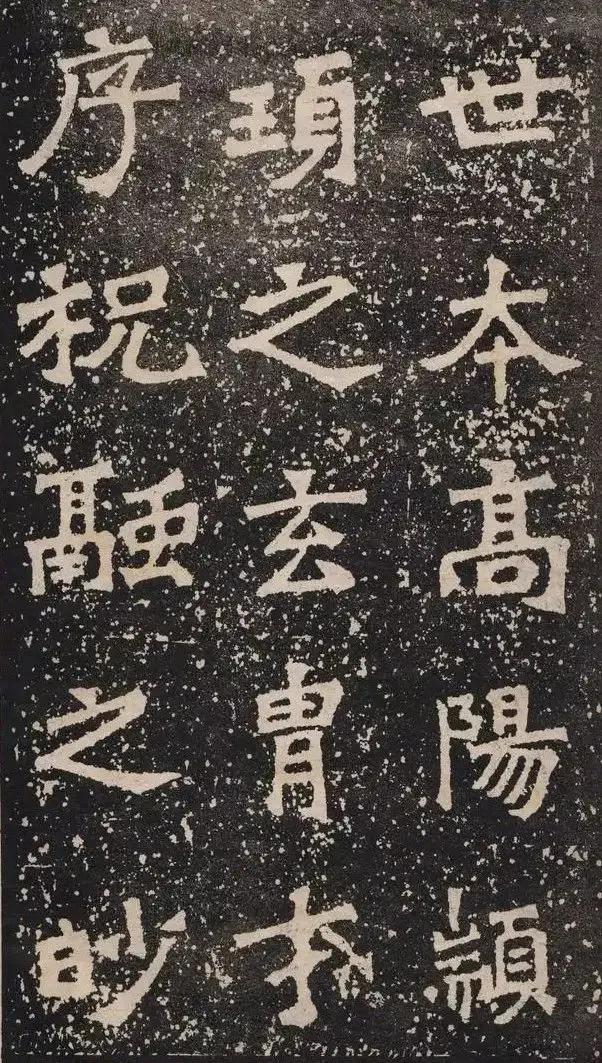 世本高陽顓
頊之玄胄才
序祝融之眇